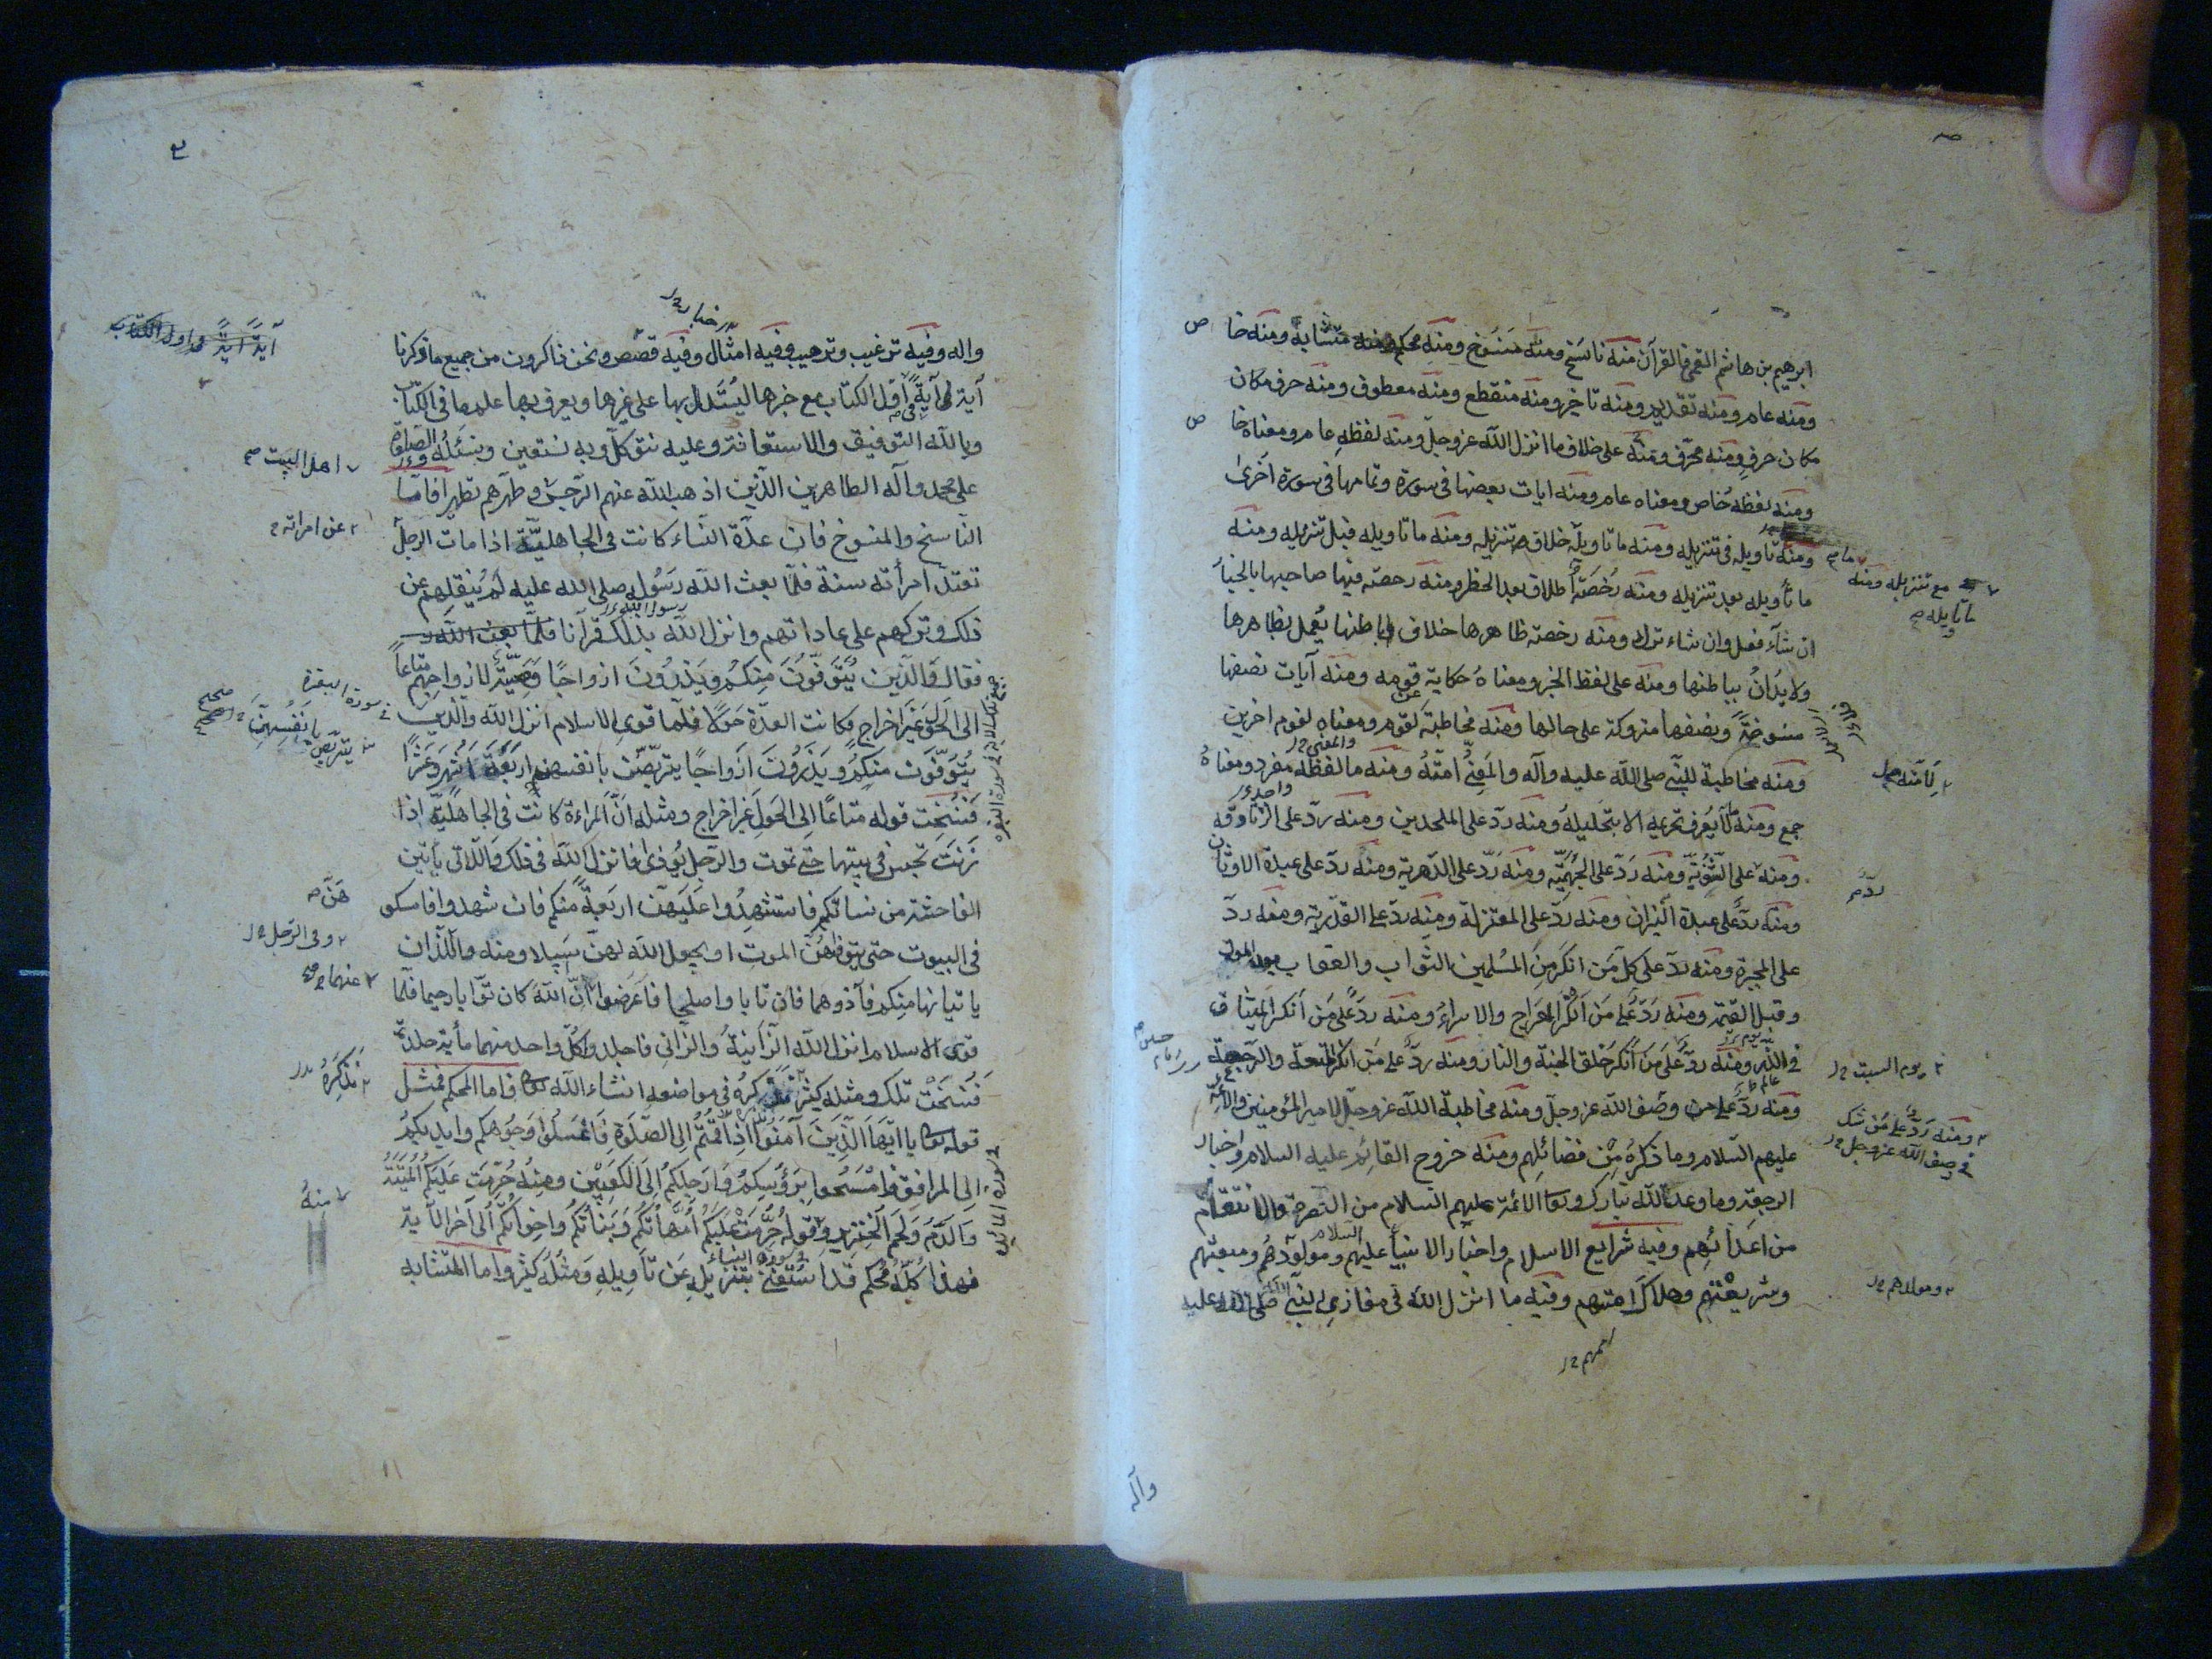 ابرهيم بن هاشم القمى فالقرآن منه ناسخ ومنه منسوخ ومنه محكم ومنه متشابه ومنه خا ص
ومنه عام ومنه تقديم ومنه تاخير ومنه منقطع ومنه معطوف ومنه حرف مكان
مكان حرف ومنه محرف ومنه على خلاف ما انزل الله عز وجل ومنه لفظه عام ومعناه خا ص
ومنه لفظه خاص ومعناه عام ومنه ايات بعضها فى سورة وتمامها فى سورة اخرى
ومنه تاويله فى تنزيله ومنه ما تاويله خلاف تنزيله ومنه ما تاويله قبل تنزيله ومنه
ما تأويله بعد تنزيله ومنه رخصة اطلاق بعد الحظر ومنه رخصة فيها صاحبها بالخيار
ان شآء فعل وان شاء ترك ومنه رخصة ظاهرها خلاف باطنها يعمل بظاهرها
ولا يدان بباطنها ومنه على لفظ الخبر ومعناه حكاية عن قوم ومنه آيات نصفها
منسوخة ونصفها متروكة على حالها ومنه مخاطبة لقوم ومعناه لقوم اخرين
ومنه مخاطبة للنبى صلى الله عليه وآله والمعنى امته ومنه ما لفظه مفرد ومعناه
جمع ومنه ما لا يعرف تحريمه الا بتحليله ومنه رد على الملحدين ومنه رد على الزنادقه
ومنه على الثنوية ومنه رد على الجهمية ومنه رد على الدهرية ومنه رد على عبدة الاوثان
ومنه رد على عبدة النيران ومنه رد على المعتزلة ومنه رد على القدرية ومنه رد
على المجبرة ومنه رد على كل من انكر من المسلمين الثواب والعقاب بعد الموت
وقبل القيمة ومنه رد على من انكر المعراج والاسراء ومنه رد على من أنكر الميثاق
فى الذر ومنه رد على من أنكر خلق الجنة والنار ومنه رد على من انكر المتعة والرجعة
ومنه رد على من وصف الله عز وجل ومنه مخاطبة الله عز وجل لامير المؤمنين والائمة
عليهم السلام وما ذكره من فضائلهم ومنه خروج القائم عليه السلام واخبار
الرجعة وما وعد الله تبارك وتعا الائمة عليهم السلام من النصرة والانتقام
من اعدائهم وفيه شرايع الاسلام واخبار الانبيآ عليهم السلام ومولودهم ومبعثهم
وشريعتهم وهلاك امتهم وفيه ما انزل الله فى مغازى النبى صلى الله عليه
ما
مع تنزيله ومنه
ما تأويله
ردّ
يوم الست
ومنه رد على من شك
فى وصف الله عز وجل
وآله
٣
واله وفيه ترغيب وترهيب وفيه امثال وفيه قصص ونحن ذاكرون من جميع ما ذكرنا
آية آية فى اول الكتاب مع خبرها ليستدل بها على غيرها ويعرف بها علم ما فى الكتاب
وبالله التوفيق والاستعانة وعليه نتوكل وبه نستعين ونسئله الصلوة
على محمد وآله الطاهرين الذين اذهب الله عنهم الرجس وطهرهم تطهيرا فاما
الناسخ والمنسوخ فان عدة النساء كانت فى الجاهلية اذا مات الرجل
تعتد امرأته سنة فلما بعث الله رسول صلى الله عليه لم ينقلهم عن
ذلك وتركهم على عاداتهم وانزل الله بذلك قرآنا فلما بعث الله
فقال والذين يتوفون منكم ويذرون ازواجا وصية لازواجهم متاعا
الى الحول غير اخراج فكانت العدة حولا فلما قوى الاسلام انزل الله والذين
يتوفون منكم ويذرون ازواجا يتربصن بانفسهن اربعة اشهر وعشرا
فنسخت قوله متاعا الى الحول غير اخراج ومثله ان المراءة كانت فى الجاهلية اذا
زنت تحبس فى بيتها حتى تموت والرجل يوذى فانزل الله فى ذلك واللاتى يأتين
الفاحشة من نسائكم فاستشهدوا عليهن اربعة منكم فان شهدوا فامسكو
فى البيوت حتى يتوفهن الموت او يجعل الله لهن سبيلا ومنه واللذان
ياتيانها منكم فآذوهما فان تابا واصلحا فاعرضوا ان الله كان توابا رحيما فلما
قوى الاسلام انزل الله الزانية والزانى فاجلدوا كل واحد منهما مأية جلدة
فنسخت تلك ومثله كثير نذكره فى مواضعه انشاء الله تعا فاما المحكم فمثل
قوله تعا يا ايها الذين آمنوا اذا قمتم الى الصلوة فاغسلوا وجوهكم وايديكم
الى المرافق وامسحوا برؤسكم وارجلكم الى الكعبين ومنه حرمت عليكم الميتة
والدم ولحم الخنزير وقوله حرمت عليكم امهاتكم وبناتكم واخواتكم الى آخر الآية
فهذا كله محكم قد استغنى بتنزيله عن تأويله ومثله كثير واما المتشابه
اهل البيت
عن امراته
فى سورة البقرة
بانفسهن
يتربصن
هن
وفى الرجل
عنهما
نذكره
منه